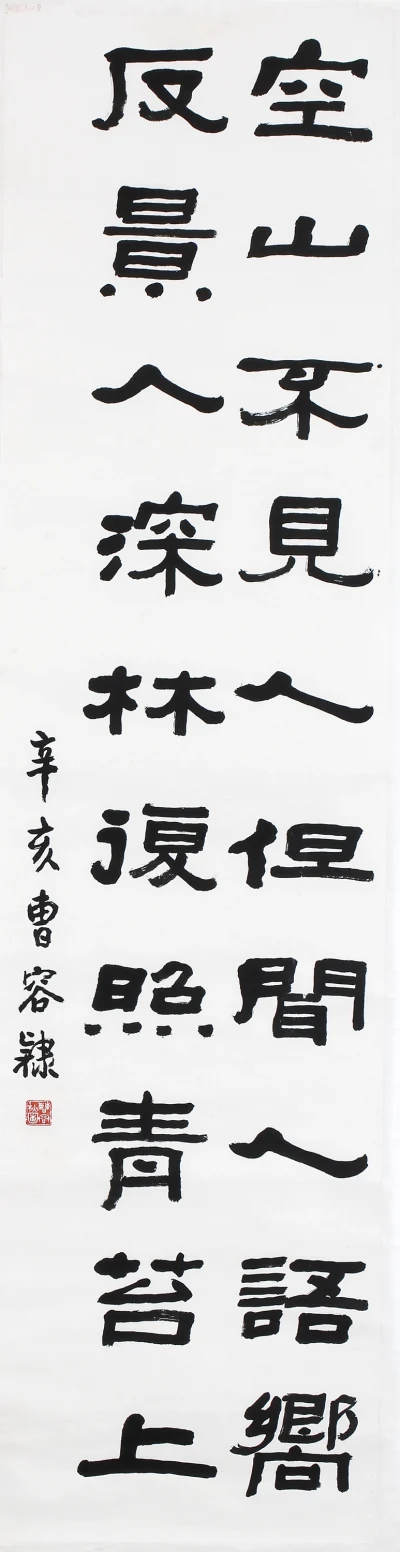 空山不見人但聞人語嚮
反景入深林復照青苔上
辛亥曹容隸